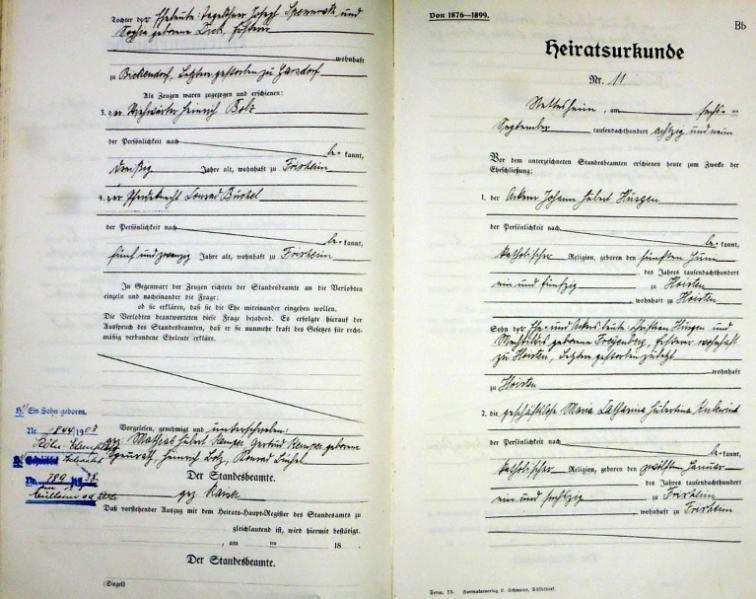 Tochter der Eheleute: Tagelöhner Joseph und
Sophie geborene
wohnhaft
zu Bickendorf, Letztere gestorben zu Garsdorf
Als Zeugen waren zugezogen und erschienen:
3. der Heinrich Bolz
der Persönlichkeit nach
be- kannt,
dreißig Jahre alt, wohnhaft zu Frixheim
4. der Pferdeknecht Conrad Büchel
der Persönlichkeit nach
be- kannt,
fünf und zwanzig Jahre alt, wohnhaft zu Frixheim
In Gegenwart der Zeugen richtete der Standesbeamte an die Verlobten
einzeln und nacheinander die Frage:
ob sie erklären, daß sie die Ehe miteinander eingehen wollen.
Die Verlobten beantworteten diese Frage bejahend. Es erfolgte hierauf der
Ausspruch des Standesbeamten, daß er sie nunmehr kraft des Gesetzes für recht-
mäßig verbundene Eheleute erkläre.
H. Ein Sohn geboren.
Nr. 844/1908
Vorgelesen, genehmigt und unterschrieben:
gez. Mathias Hubert Kemper Gertrud Kemper geborene
Heinrich Bolz, Konrad Büchel
Nr. 789/19 38
Der Standesbeamte.
gez
Daß vorstehender Auszug mit dem Heirats-Haupt-Register des Standesamts zu
gleichlautend ist, wird hiermit bestätigt.
, am ten 18
Der Standesbeamte.
(Siegel)
Von 1876—1899.
Bb
Heiratsurkunde
Nr. 11
Nettesheim, am sechs-
September tausendachthundert achtzig und neun
Vor dem unterzeichneten Standesbeamten erschienen heute zum Zwecke der
Eheschließung:
1. der Ackerer Johann Hubert Hüsgen
der Persönlichkeit nach
be- kannt,
katholischer Religion, geboren den fünften Juni
des Jahres tausendachthundert
ein und fünfzig zu Hoisten
, wohnhaft zu Hoisten
Sohn der Ehe- und Ackersleute: Christian Hüsgen und
geborene Ersterer wohnhaft
zu Hoisten, Letztere gestorben zuletzt
wohnhaft
zu Hoisten
2. die geschäftslose Maria Catharina Hubertina
der Persönlichkeit nach
be- kannt,
katholischer Religion, geboren den zwölften Januar
des Jahres tausendachthundert
ein und sechzig zu Frixheim
, wohnhaft zu Frixheim